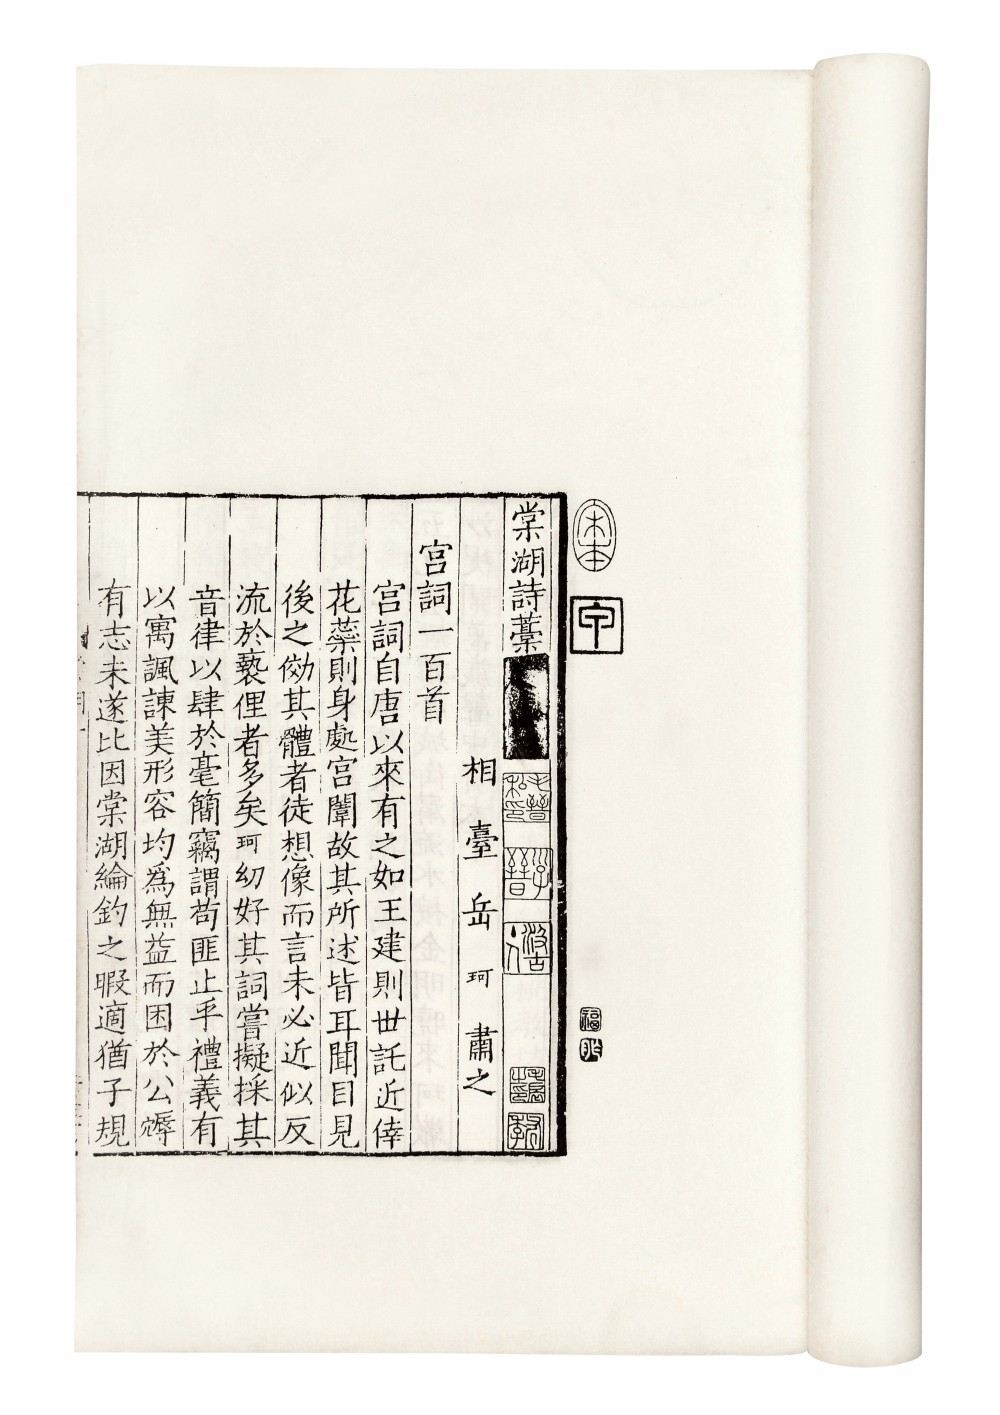 棠湖詩藁
宫詞一百首
相臺岳珂肅之
宫詞自唐以來有之如王建則世託近倖
花蘂則身處宫闈故其所述皆耳聞目見
後之効其體者徒想像而言未必近似反
流於褻俚者多矣珂幼好其詞嘗擬採其
音律以肆於毫簡竊謂苟匪止乎禮義有
以寓諷諌美形容均爲無益而困於公𡡾
有志未遂比因棠湖綸釣之暇適猶子規
宋本